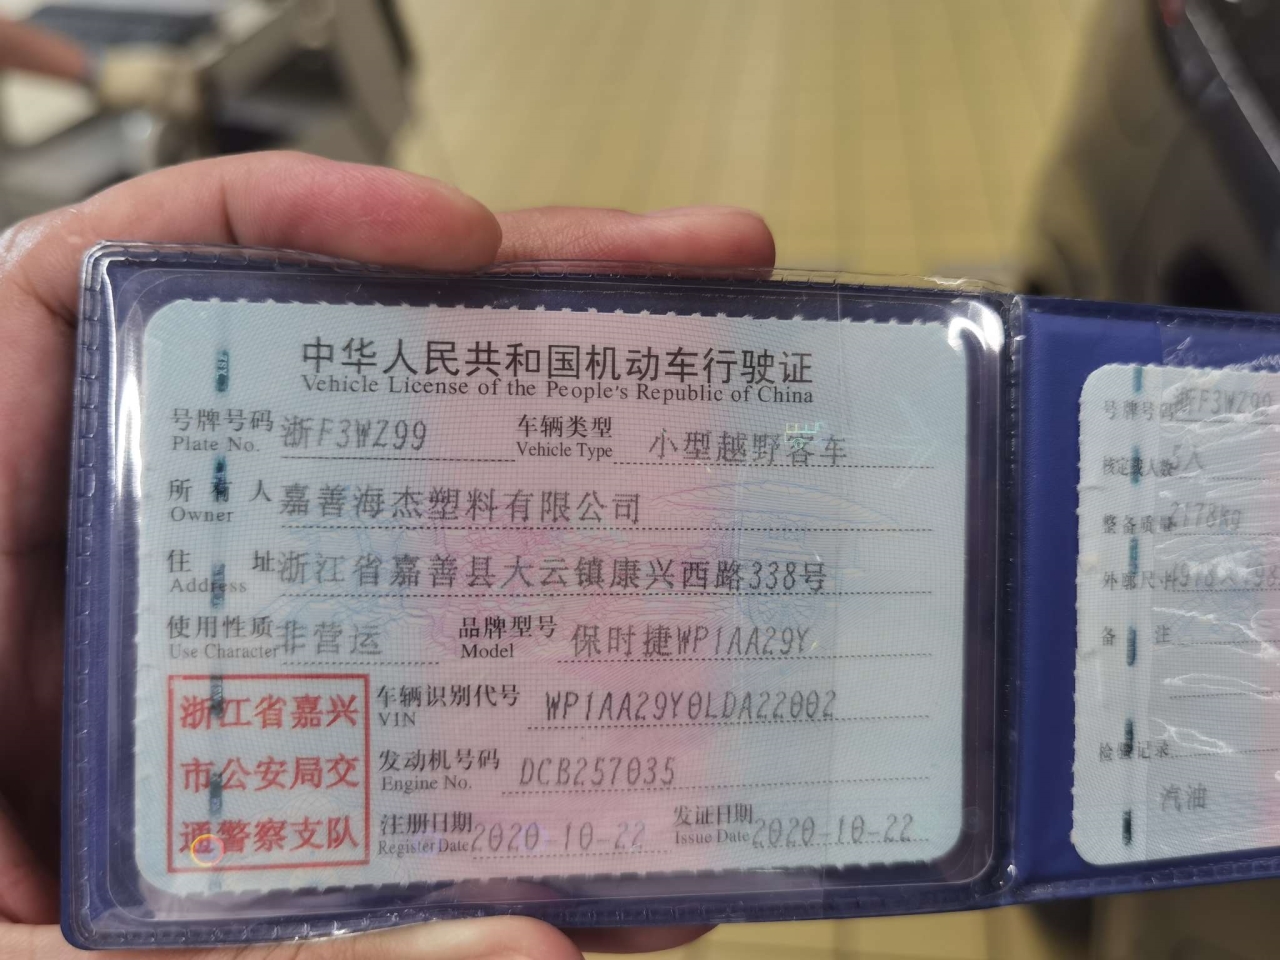 中华人民共和国机动车行驶证
Vehicle License of the People's Republic of China
号牌号码 浙F3WZ99 车辆类型 小型越野客车
Plate No. Vehicle Type
所有人 嘉善海杰塑料有限公司
Owner
住址 浙江省嘉善县大云镇康兴西路338号
Address
使用性质 非营运 品牌型号 保时捷WP1AA29Y
Use Character Model
浙江省嘉兴
市公安局交
通警察支队
车辆识别代号 WP1AA29Y0LDA22002
VIN
发动机号码 DCB257035
Engine No.
注册日期 2020-10-22 发证日期 2020-10-22
Register Date Issue Date
号牌号码 浙F3WZ99
核定载人数 5人
整备质量 2178kg
外廓尺寸
备注
检验记录
汽油